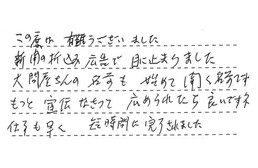 この度は有難うございました
新聞の折込み広告で目に止まりました
大問屋さんの名前も始めて聞く名前です
もっと宣伝なさって広められたら良いですネ
仕事も早く 短時間に完了されました